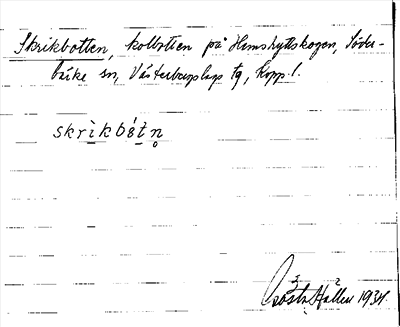 Skrikbotten, kolbotten på Hemshyttskogen, Söder-
bärke sn, Västerbergslags tg, Kopp. l.
skrìkbɛ́tn̥
Hallen 1934.